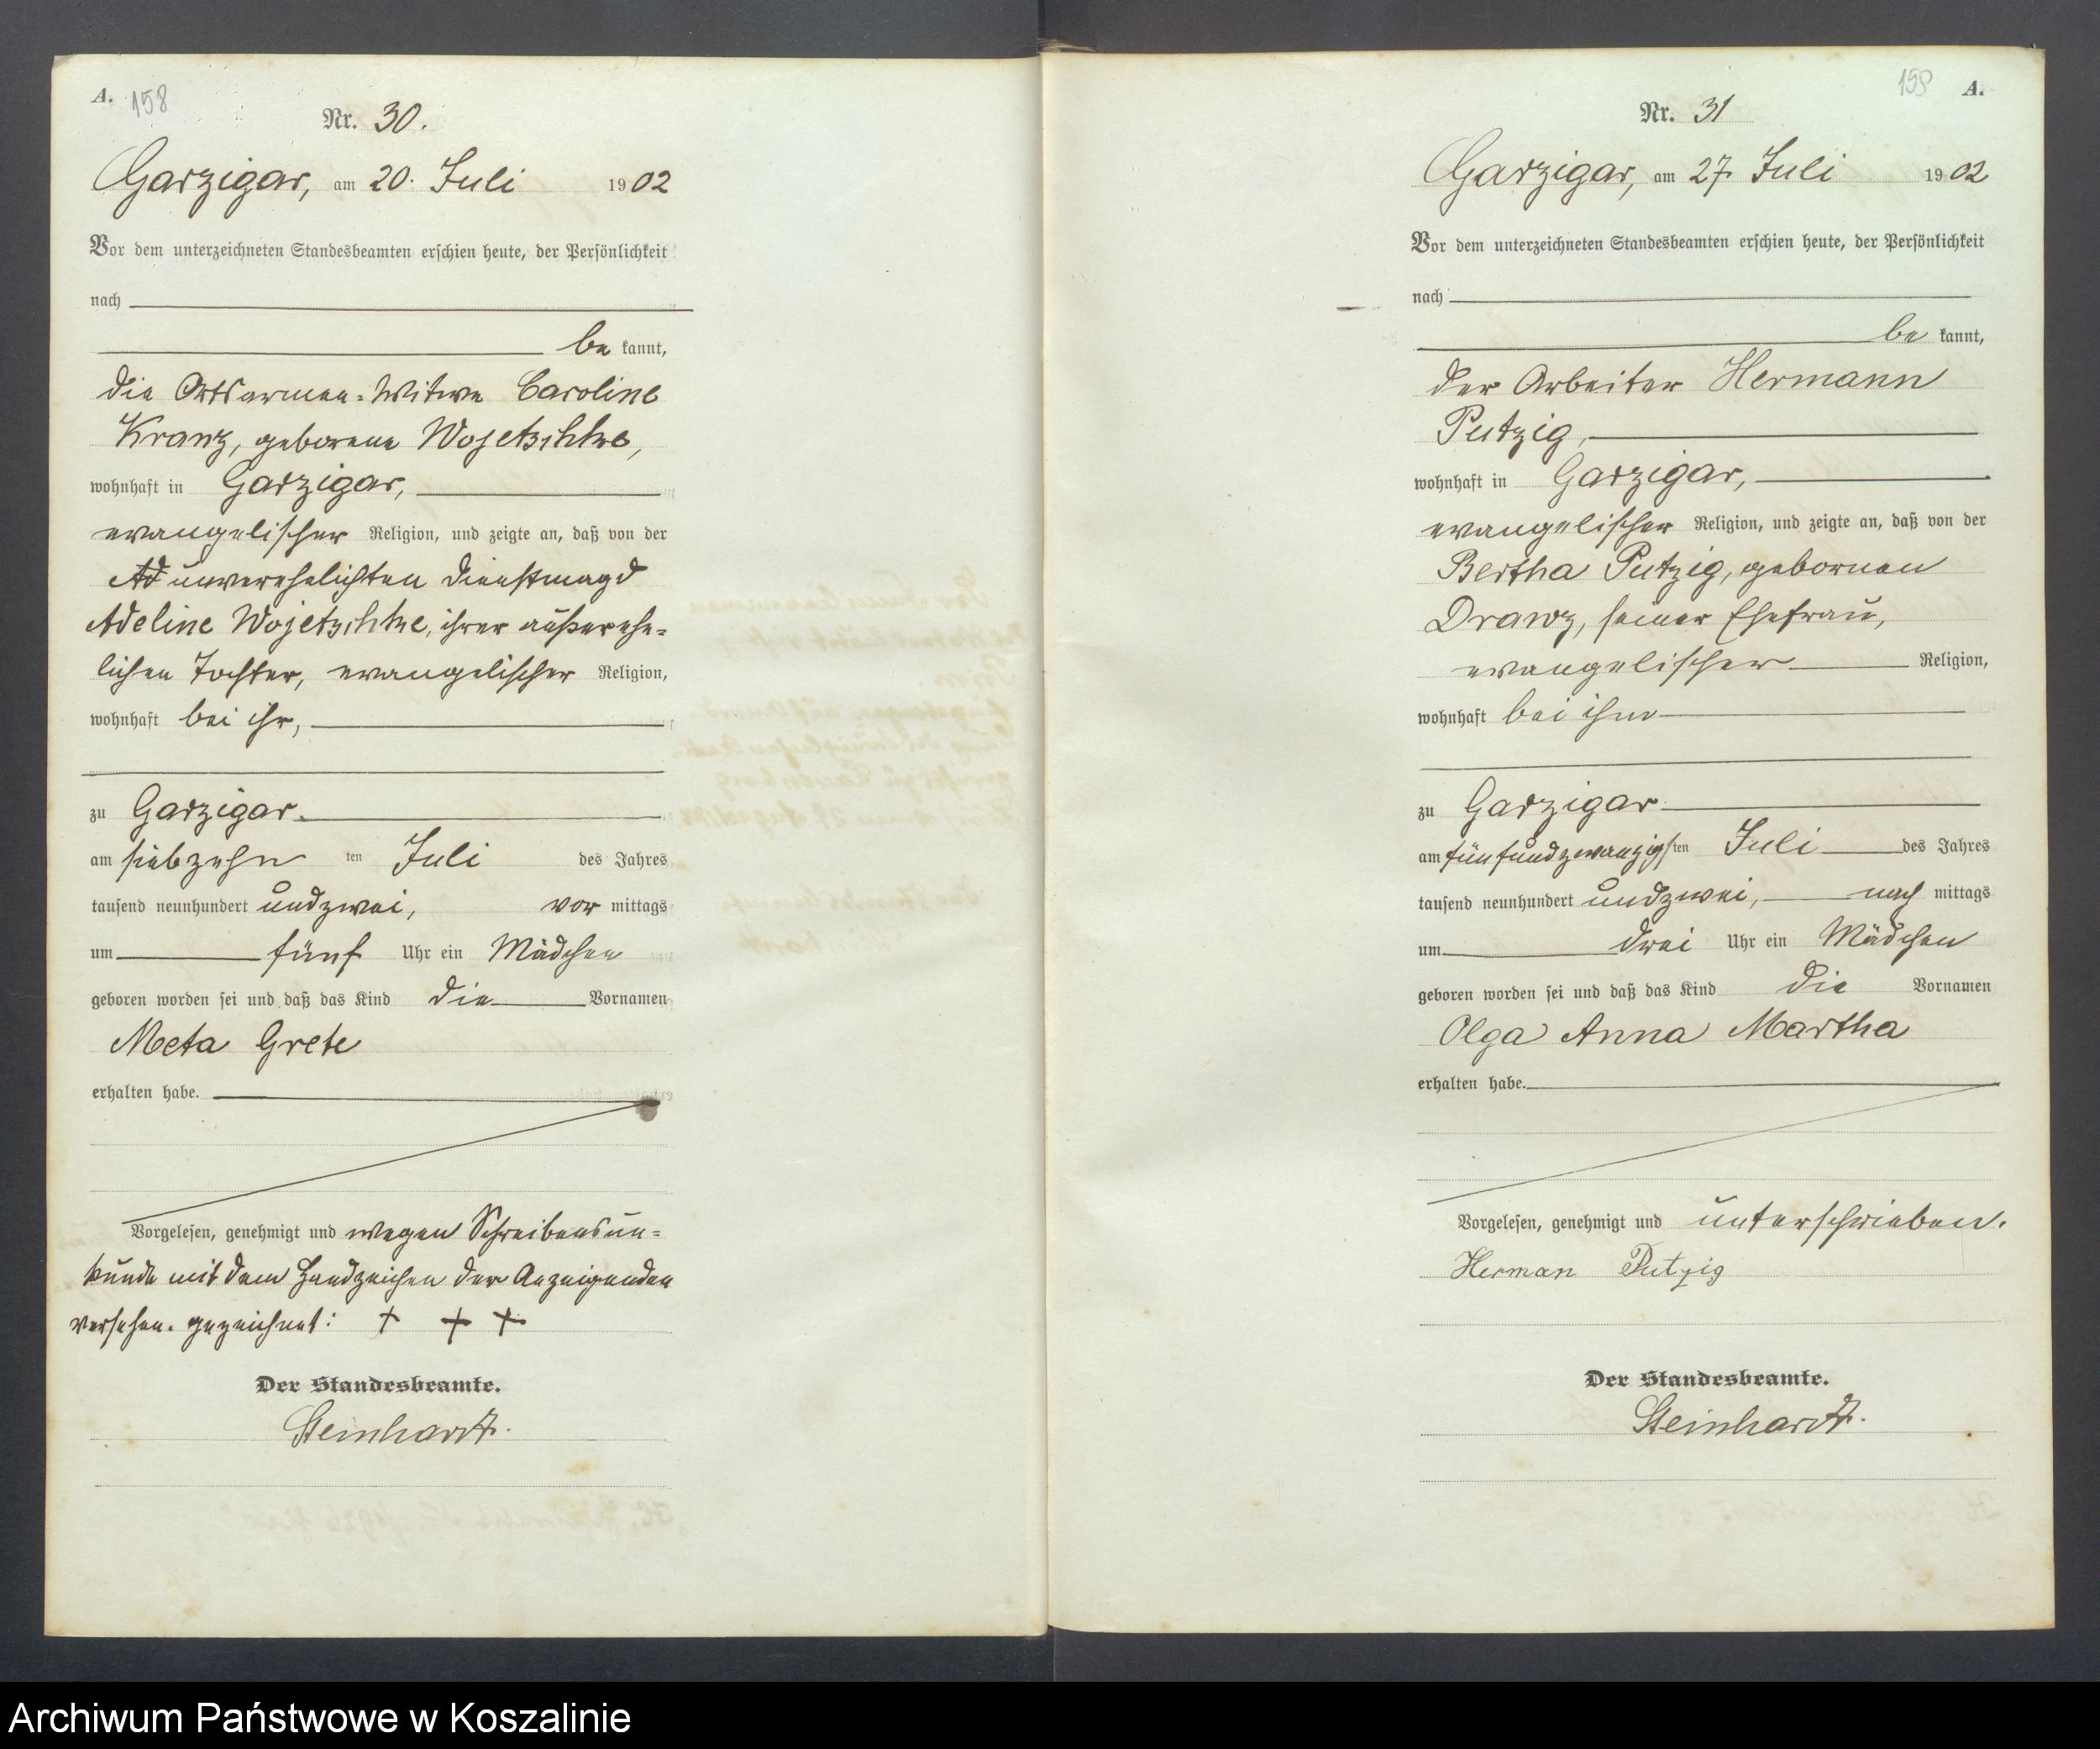 A. 158
Nr. 30.
Garzigar, am 20. Juli 1902
Vor dem unterzeichneten Standesbeamten erschien heute, der Persönlichkeit
nach
be kannt,
die Ortsarmen-Witwe Caroline
Kranz, geborene Wojetschke,
wohnhaft in Garzigar,
evangelischer Religion, und zeigte an, daß von der
Ad unverehelichten Dienstmagd
Adeline Wojetschke, ihrer außerehe-
lichen Tochter, evangelischer Religion,
wohnhaft bei ihr,
zu Garzigar.
am siebzehn ten Juli des Jahres
tausend neunhundert undzwei, vor mittags
um fünf Uhr ein Mädchen
geboren worden sei und daß das Kind die Vornamen
Meta Grete
erhalten habe.
Vorgelesen, genehmigt und wegen Schreibensun-
kunde mit dem Handzeichen der Anzeigenden
versehen. gezeichnet: + + +
Der Standesbeamte.
Steinhardt.
159 A.
Nr. 31
Garzigar, am 27. Juli 1902
Vor dem unterzeichneten Standesbeamten erschien heute, der Persönlichkeit
nach
be kannt,
der Arbeiter Hermann
Putzig,
wohnhaft in Garzigar,
evangelischer Religion, und zeigte an, daß von der
Bertha Putzig, gebornen
Drawz, seiner Ehefrau,
evangelischer Religion,
wohnhaft bei ihm
zu Garzigar
am fünfundzwanzigsten Juli des Jahres
tausend neunhundert undzwei, nach mittags
um drei Uhr ein Mädchen
geboren worden sei und daß das Kind die Vornamen
Olga Anna Martha
erhalten habe.
Vorgelesen, genehmigt und unterschrieben.
Herman Putzig
Der Standesbeamte.
Steinhardt.
Archiwum Państwowe w Koszalinie